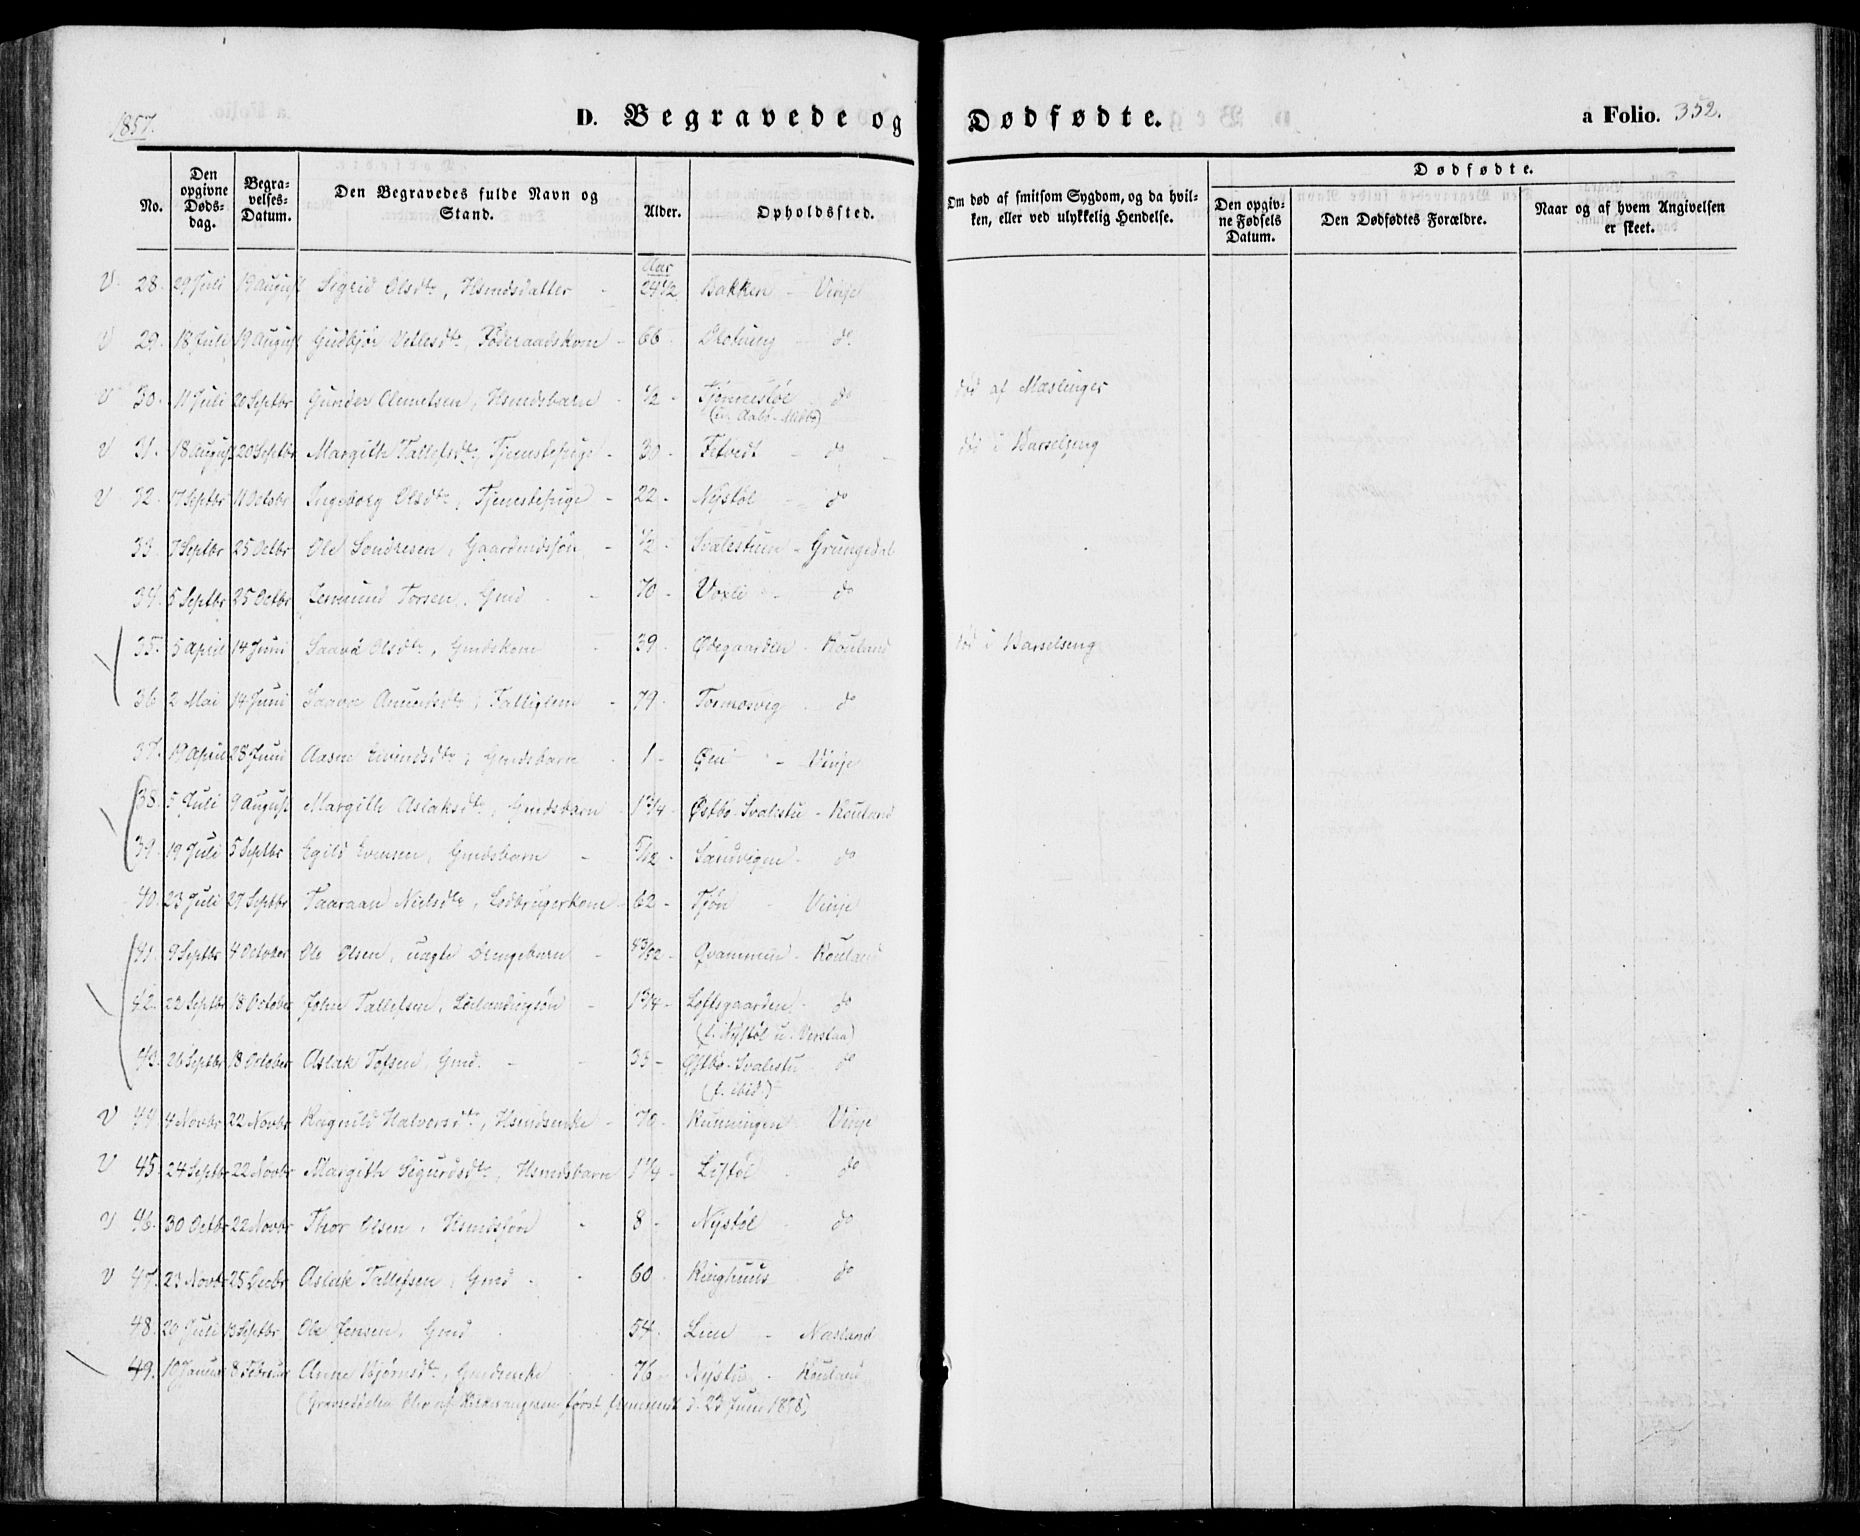 1857.
D. Begravede og Dødfødte. a Folio. 352.
No.
Den opgivne Døds-dag.
Begra-velses-Datum.
Den Begravedes fulde Navn og Stand.
Alder.
Opholdssted.
Om død af smitsom Sygdom, og da hvil-ken, eller ved ulykkelig Hendelse.
Dødfødte.
Den opgiv-ne Fødsels Datum.
Den Dødfødtes Forældre.
Naar og af hvem Angivelsen er skeet.
Aar
V 28. 29 Juli 19 August Sigrid Olsdtr, Hsmdsdatter 24 1/2 Bakken - Vinje
V 29. 18 Juli 19 August Gudbjør Vetlesdtr, Føderaadskone - 66 - do
V 30. 11 Juli 20 Septbr Gunder, Hsmdsbarn 1/2 Tjønnestøl do død af Mæslinger
V 31. 18 August 20 Septbr Margith Tallefsdtr, Tjenestepige - 30 - do død i Barselseng
V 32. 17 Septbr 11 Octobr Ingeborg Olsdtr, Tjenestepige - 22 - Nystøl do
33. 7 Septbr 25 Octbr Ole Sondresen, Gaardmdssøn - 1/2 - Svalestuen - Grungedal
34. 5 Septbr 25 Octbr Torsen, Gmd - 70 - Voxli - do
35. 5 April 14 Juni Saave Olsdtr, Gmdskone 39 - Ødegaarden - Rouland død i Barselseng
36 2 Mai 14 Juni Saave Amundsdtr, Fattiglem - 79 - Tormosvig - do
37. 19 April 28 Juni Aasne Eivindsdtr, Gmdsbarn - 1 - Øen - Vinje
38. 5 Juli 9 August Margith Aslaksdtr, Gmdsbarn 1 3/4 - Østbø-Svalestu - Rouland
39. 19 Juli 5 Septbr Egild Evensen, Gmdsbarn - 5/12 - Sandvigen - do
40. 23 Juli 27 Septbr Taaraan Nielsdtr, Lodbrugerkone 62 - Tjøn - Vinje
41. 9 Septbr 4 October Ole Olsen, uægte Drengebarn - 4 3/12 - Qvammen - Rouland
42. 22 Septbr 18 October John Tallefsen, Leilendingsøn - 1 3/4 - Loftsgaarden - do
(f. Nystøl u. Verstaa)
43. 26 Septbr 18 October Aslak Tofsen, Gmd. - 35 - Østbø-Svalestu do
(f. ibid.)
V 44. 4 Novbr 22 Novbr Ragnild Halvorsdtr, Hsmdsenke - 70 - Vinje
V 45. 24 Septbr 22 Novbr Margith Sigurdsdtr, Hsmdsbarn 1 1/4 - Listøl - do
V 46. 30 Octbr 22 Novbr Thor Olsen, Hsmdssøn - 8 - Nystøl - do
V 47. 23 Novbr 25 Decbr Aslak Tallefsen, Gmd - 60 - Ringhuus do
48. 20 Juli 13 Septbr Ole Jensen, Gmd 54. - Næsland
49. 10 Januar 8 Februar Anne Bjørnsdtr, Gmdsenke 76 - Nystu - Rouland
først d. 23 Juni 1878)